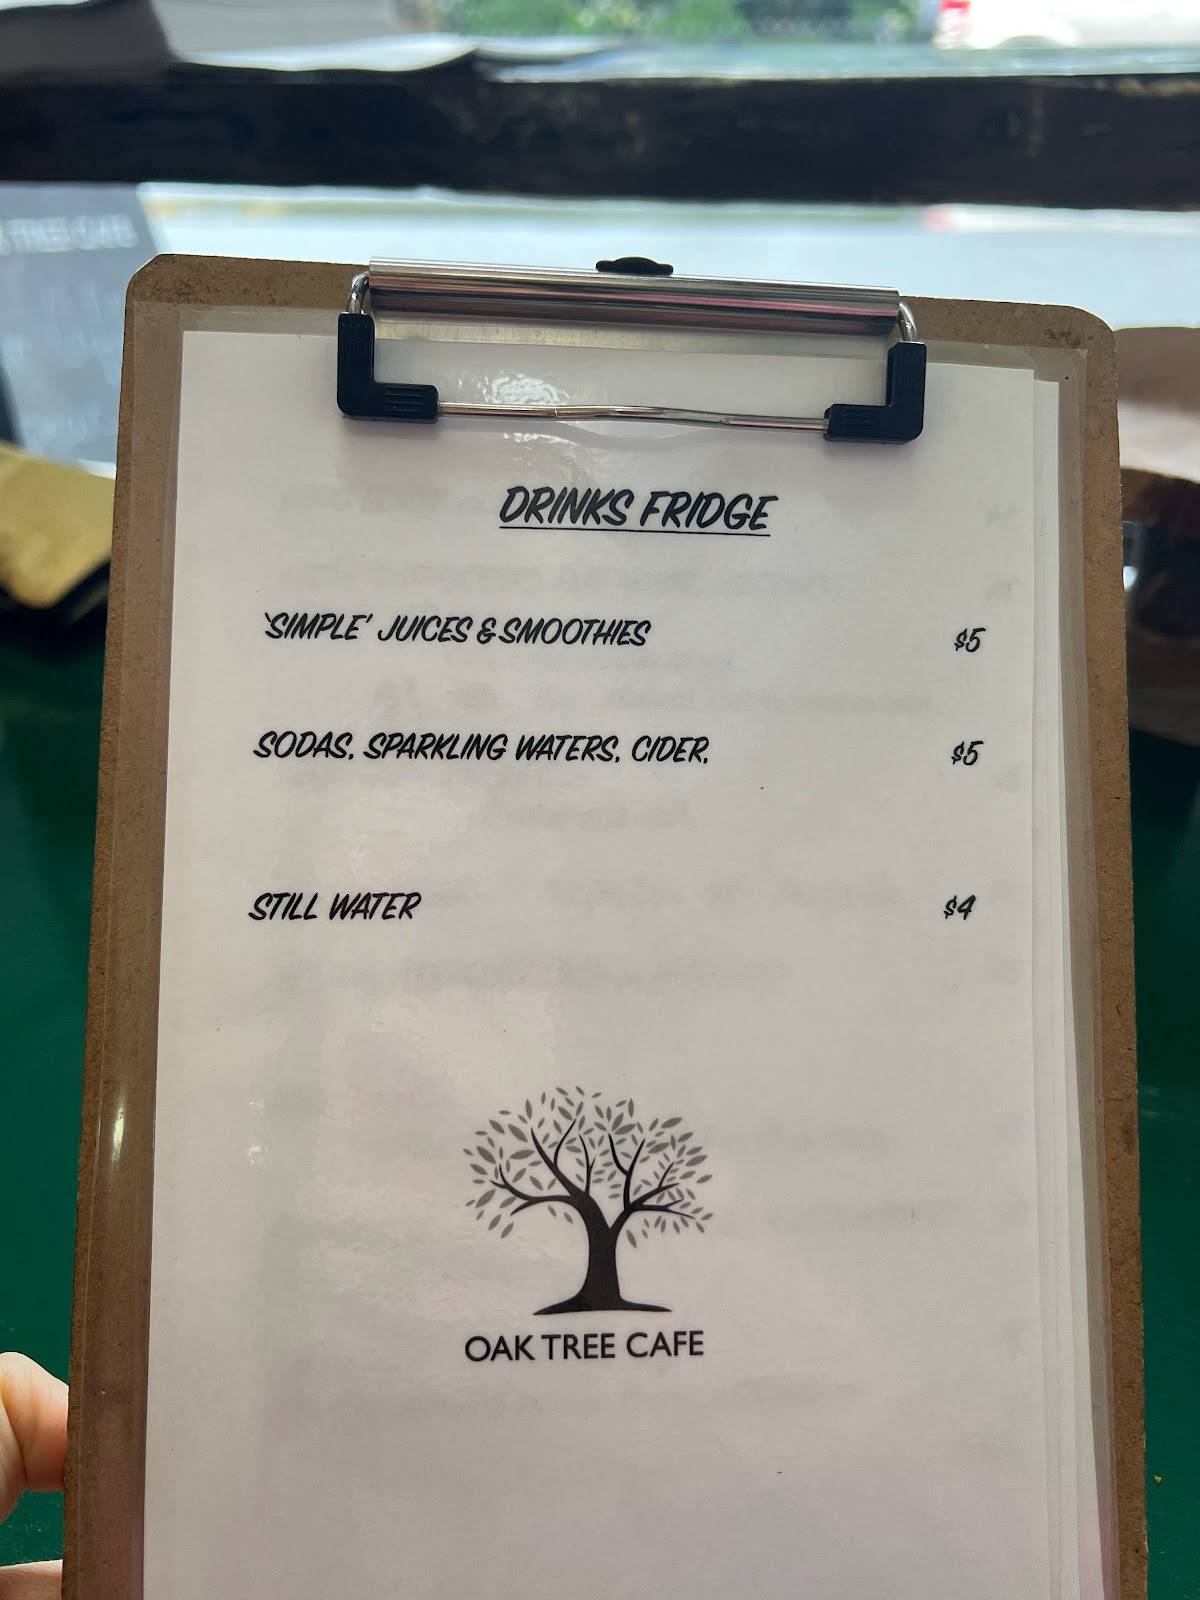 TREE CAFE
DRINKS FRIDGE
'SIMPLE' JUICES & SMOOTHIES $5
SODAS, SPARKLING WATERS, CIDER, $5
STILL WATER $4
OAK TREE CAFE